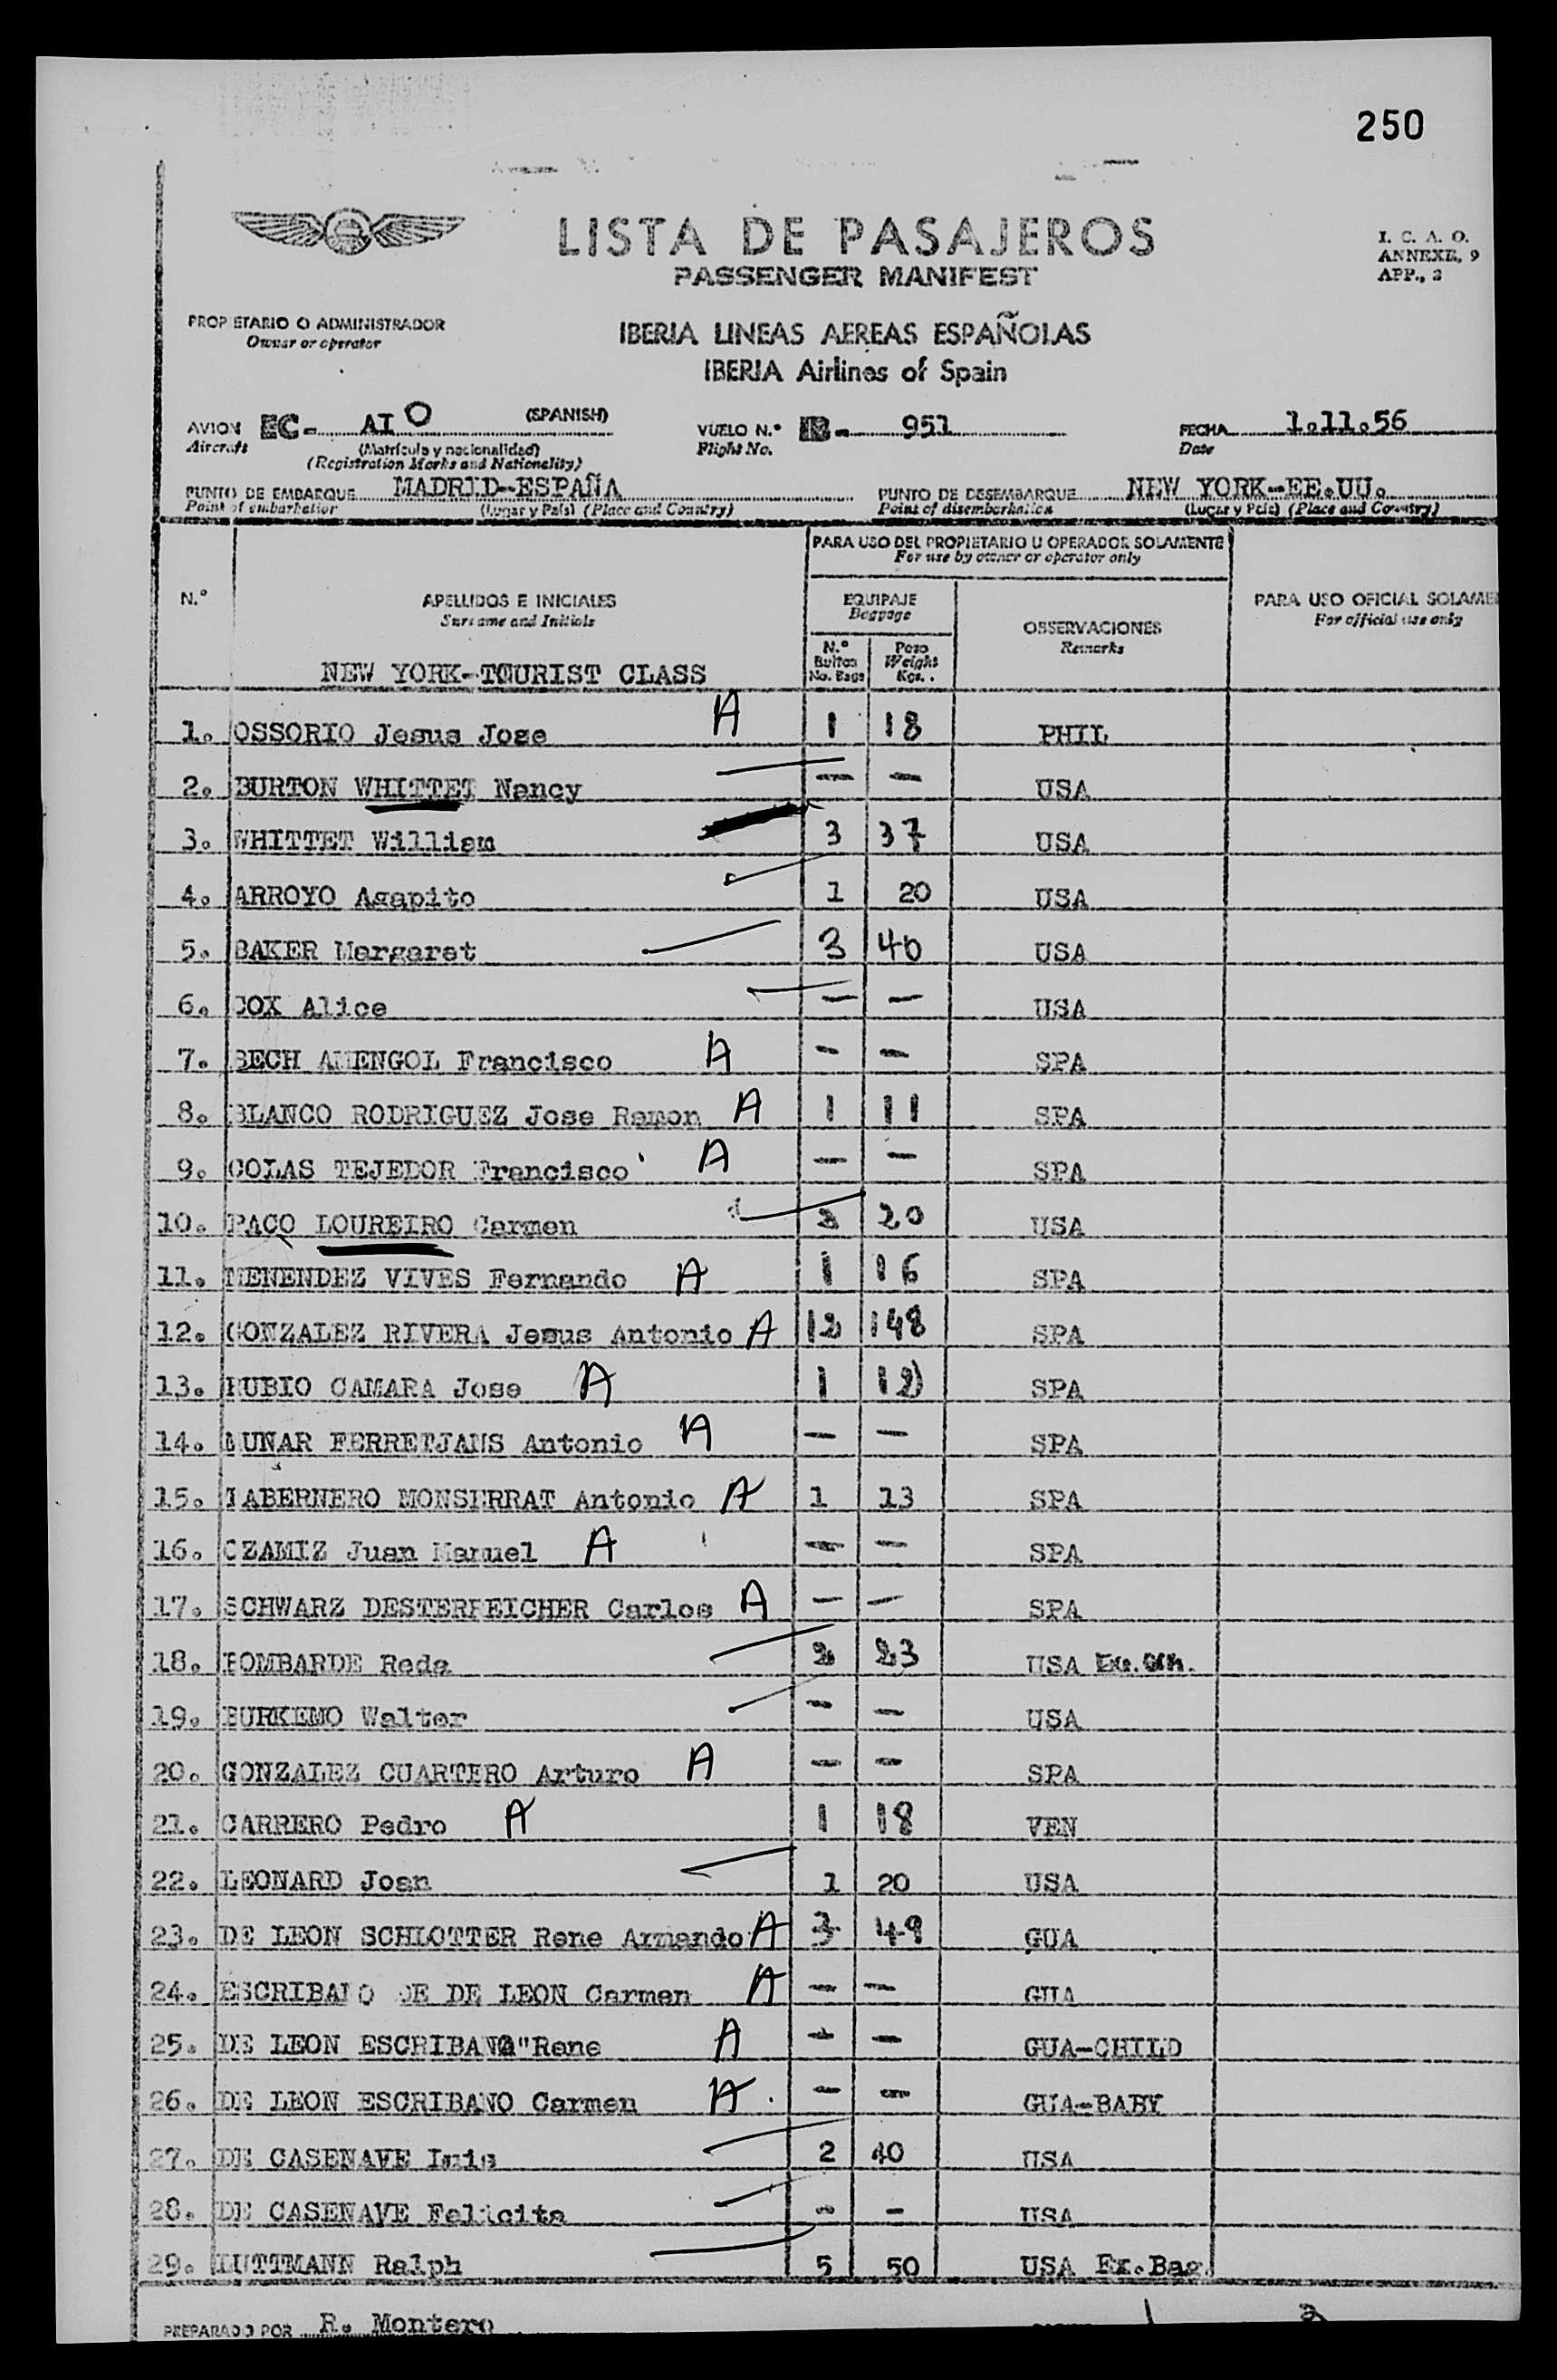 250
LISTA DE PASAJEROS
PASSENGER MANIFEST
I. C. A. O.
ANNEXE, 9
APP., 2
PROPIETARIO O ADMINISTRADOR
Owner or operator
IBERIA LINEAS AEREAS ESPAÑOLAS
IBERIA Airlines of Spain
AVION EC- AI O (SPANISH) VUELO N.° IB- 951 FECHA 1.11.56
Aircraft (Matrícula y nacionalidad) Flight No. Date
(Registration Marks and Nationality)
PUNTO DE EMBARQUE MADRID--ESPAÑA PUNTO DE DESEMBARQUE NEW YORK-EE.UU.
Point of embarkation (Lugar y País) (Place and Country) Point of disembarkation (Lugar y País) (Place and Country)
PARA USO DEL PROPIETARIO U OPERADOR SOLAMENTE
For use by owner or operator only
N.° APELLIDOS E INICIALES EQUIPAJE OBSERVACIONES PARA USO OFICIAL SOLAME
Surname and Initials Baggage Remarks For official use only
N.° Bultos No. Bags Peso Weight Kgs.
NEW YORK-TOURIST CLASS
1. OSSORIO Jesus Jose A 1 18 PHIL
2. BURTON WHITTET Nancy — — USA
3. WHITTET William 3 37 USA
4. ARROYO Agapito 1 20 USA
5. BAKER Margaret 3 40 USA
6. COX Alice — — USA
7. BECH AMENGOL Francisco A — — SPA
8. BLANCO RODRIGUEZ Jose Ramon A 1 11 SPA
9. COLAS TEJEDOR Francisco A — — SPA
10. PACO LOUREIRO Carmen 2 20 USA
11. MENENDEZ VIVES Fernando A 1 16 SPA
12. GONZALEZ RIVERA Jesus Antonio A 12 148 SPA
13. RUBIO CAMARA Jose A 1 12 SPA
14. MUNAR FERRETJANS Antonio A — — SPA
15. TABERNERO MONSERRAT Antonio A 1 13 SPA
16. OZAMIZ Juan Manuel A — — SPA
17. SCHWARZ DESTERREICHER Carlos A — — SPA
18. BOMBARDE Reda 2 23 USA
19. BURKEMO Walter — — USA
20. GONZALEZ CUARTERO Arturo A — — SPA
21. CARRERO Pedro A 1 18 VEN
22. LEONARD Joan 1 20 USA
23. DE LEON SCHLOTTER Rene Armando A 3 49 GUA
24. ESCRIBANO DE DE LEON Carmen A — — GUA
25. DE LEON ESCRIBANO "Rene A — — GUA-CHILD
26. DE LEON ESCRIBANO Carmen A — — GUA-BABY
27. DE CASENAVE Luis 2 40 USA
28. DE CASENAVE Felicita — — USA
29. LUTTMANN Ralph 5 50 USA Ex.Bag.
PREPARADO POR R. Montero